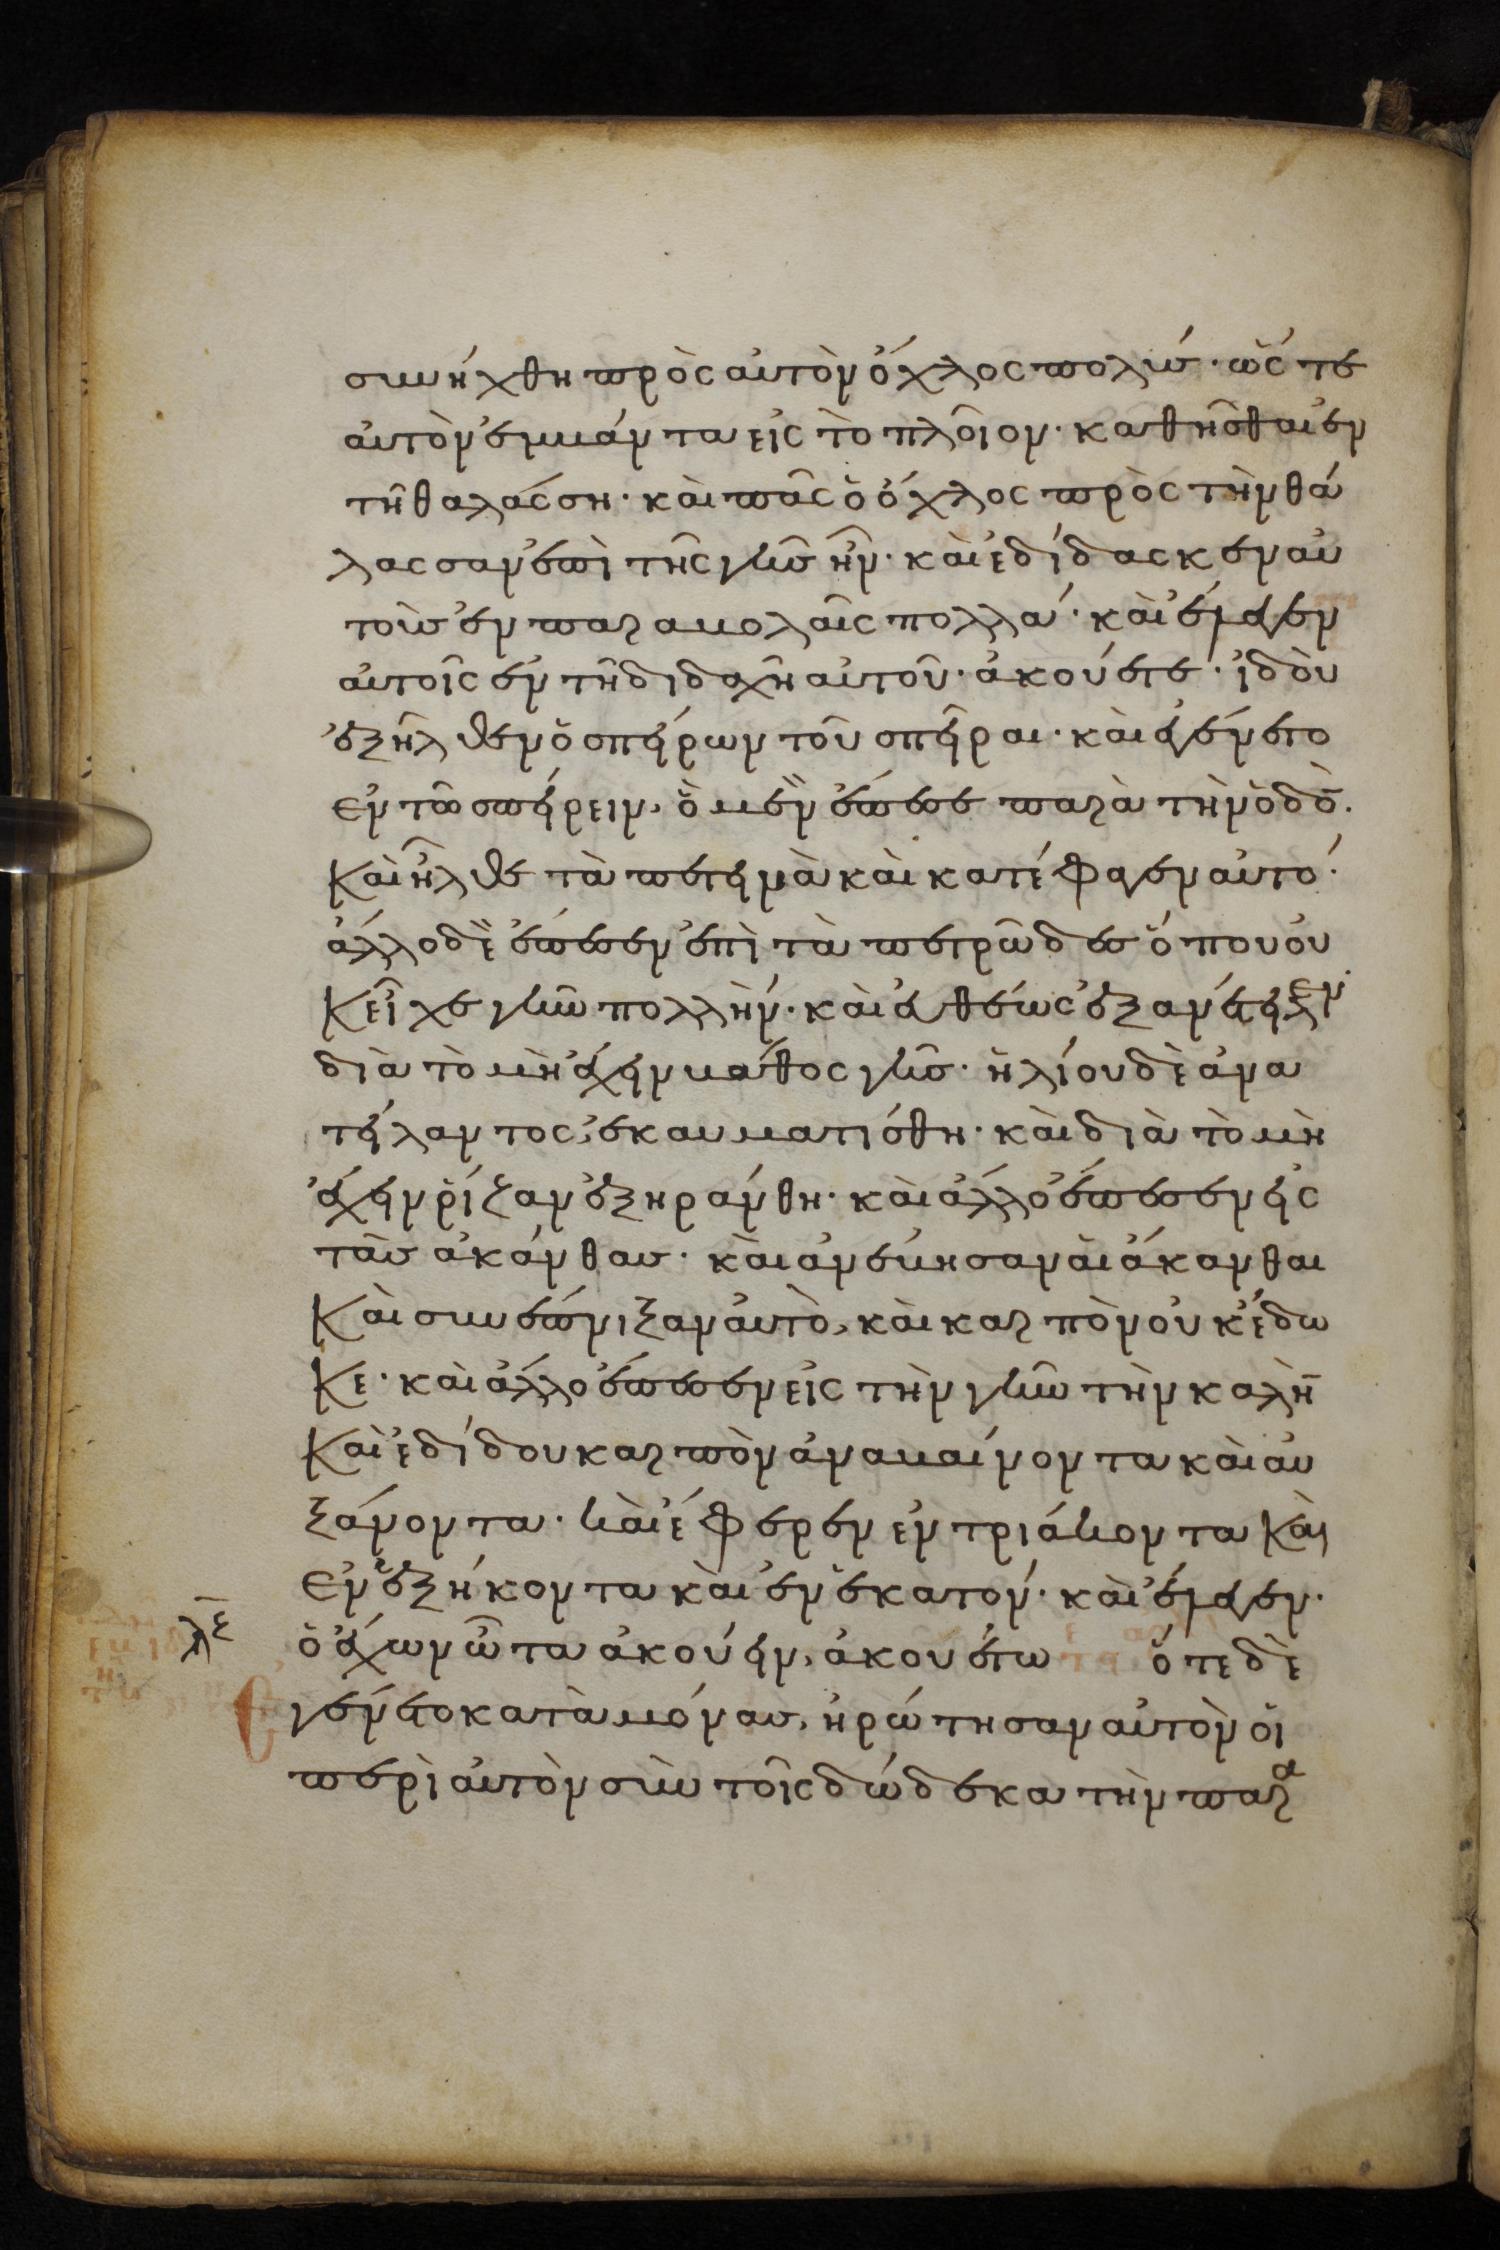 συνήχθη πρὸς αὐτὸν ὄχλος πολύς· ὥστε
αὐτὸν ἐμβάντα εἰς τὸ πλοῖον· καθῆσθαι ἐν
τῇ θαλάσσῃ· καὶ πᾶς ὁ ὄχλος πρὸς τὴν θά
λασσαν ἐπὶ τῆς γῆς ἦν· καὶ ἐδίδασκεν αὐ
τοὺς ἐν παραβολαῖς πολλά· καὶ ἔλεγεν
αὐτοῖς ἐν τῇ διδαχῇ αὐτοῦ· ἀκούετε· ἰδοὺ
ἐξῆλθεν ὁ σπείρων τοῦ σπεῖραι· καὶ ἐγένετο
ἐν τῷ σπείρειν, ὃ μὲν ἔπεσε παρὰ τὴν ὁδὸ̅.
Καὶ ἦλθε τὰ πετεινὰ καὶ κατέφαγεν αὐτό·
ἄλλο δὲ ἔπεσεν ἐπὶ τὰ πετρώδες ὅπου οὐ
Κ εἶχε γῆν πολλήν· καὶ εὐθέως ἐξανέτειλεν·
διὰ τὸ μὴ ἔχειν βάθος γῆς· ἡλίου δὲ ἀνα
τείλαντος, ἐκαυματίσθη· καὶ διὰ τὸ μὴ
ἔχειν ῥίζαν ἐξηράνθη· καὶ ἄλλο ἔπεσεν εἰς
τὰς ἀκάνθας· καὶ ἀνέβησαν αἱ ἄκανθαι
Καὶ συνέπνιξαν αὐτὸ, καὶ καρπὸν οὐκ ἔδω
Κε· καὶ ἄλλο ἔπεσεν εἰς τὴν γῆν τὴν καλὴ̅
Καὶ ἐδίδου καρπὸν ἀναβαίνοντα καὶ αὐ
ξάνοντα· καὶ ἔφερεν ἐν τριάκοντα Καὶ
Ἐν ἑξήκοντα καὶ ἐν ἑκατόν· καὶ ἔλεγεν·
ὁ ἔχων ὦτα ἀκούειν, ἀκουέτω ὅτε δὲ
λ̅ε̅
ἐγένετο κατὰ μόνας, ἠρώτησαν αὐτὸν οἱ
περὶ αὐτὸν σὺν τοῖς δώδεκα τὴν παρα